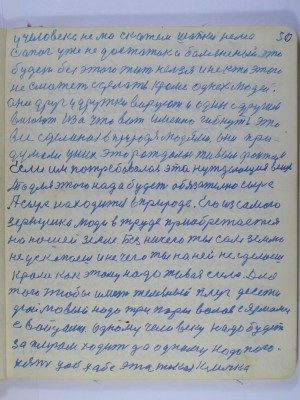 у человека нема скажем шапки или 50
сапог уже не достаток и болезненный это
будет без этого жить нельзя и некто этого
не сможет сделать кроме одних людей.
они друг у дружки воруют и один с другим
воюют из за что вот именно гибнут это
все сделано в природе людями они при
думали у них это рождение живых фактов
Если им потребовалась эта нуждающая вещь
то для этого надо будет обязательно сырье
А сырье находится в природе. Его из самого
зернушка люди в труде приобретается
на нашей земле Без ничего ты сам землю
не укопаешь и ничего ты на ней не сделаешь
кроме как этому надо живая сила. Для
того чтобы иметь железный плуг десяти
дюймовый надо три пары волов с ярмами
с войями одному человеку надо будет
за плугом ходить да одному надо пого-
нять цоб цабе эта такая кличка